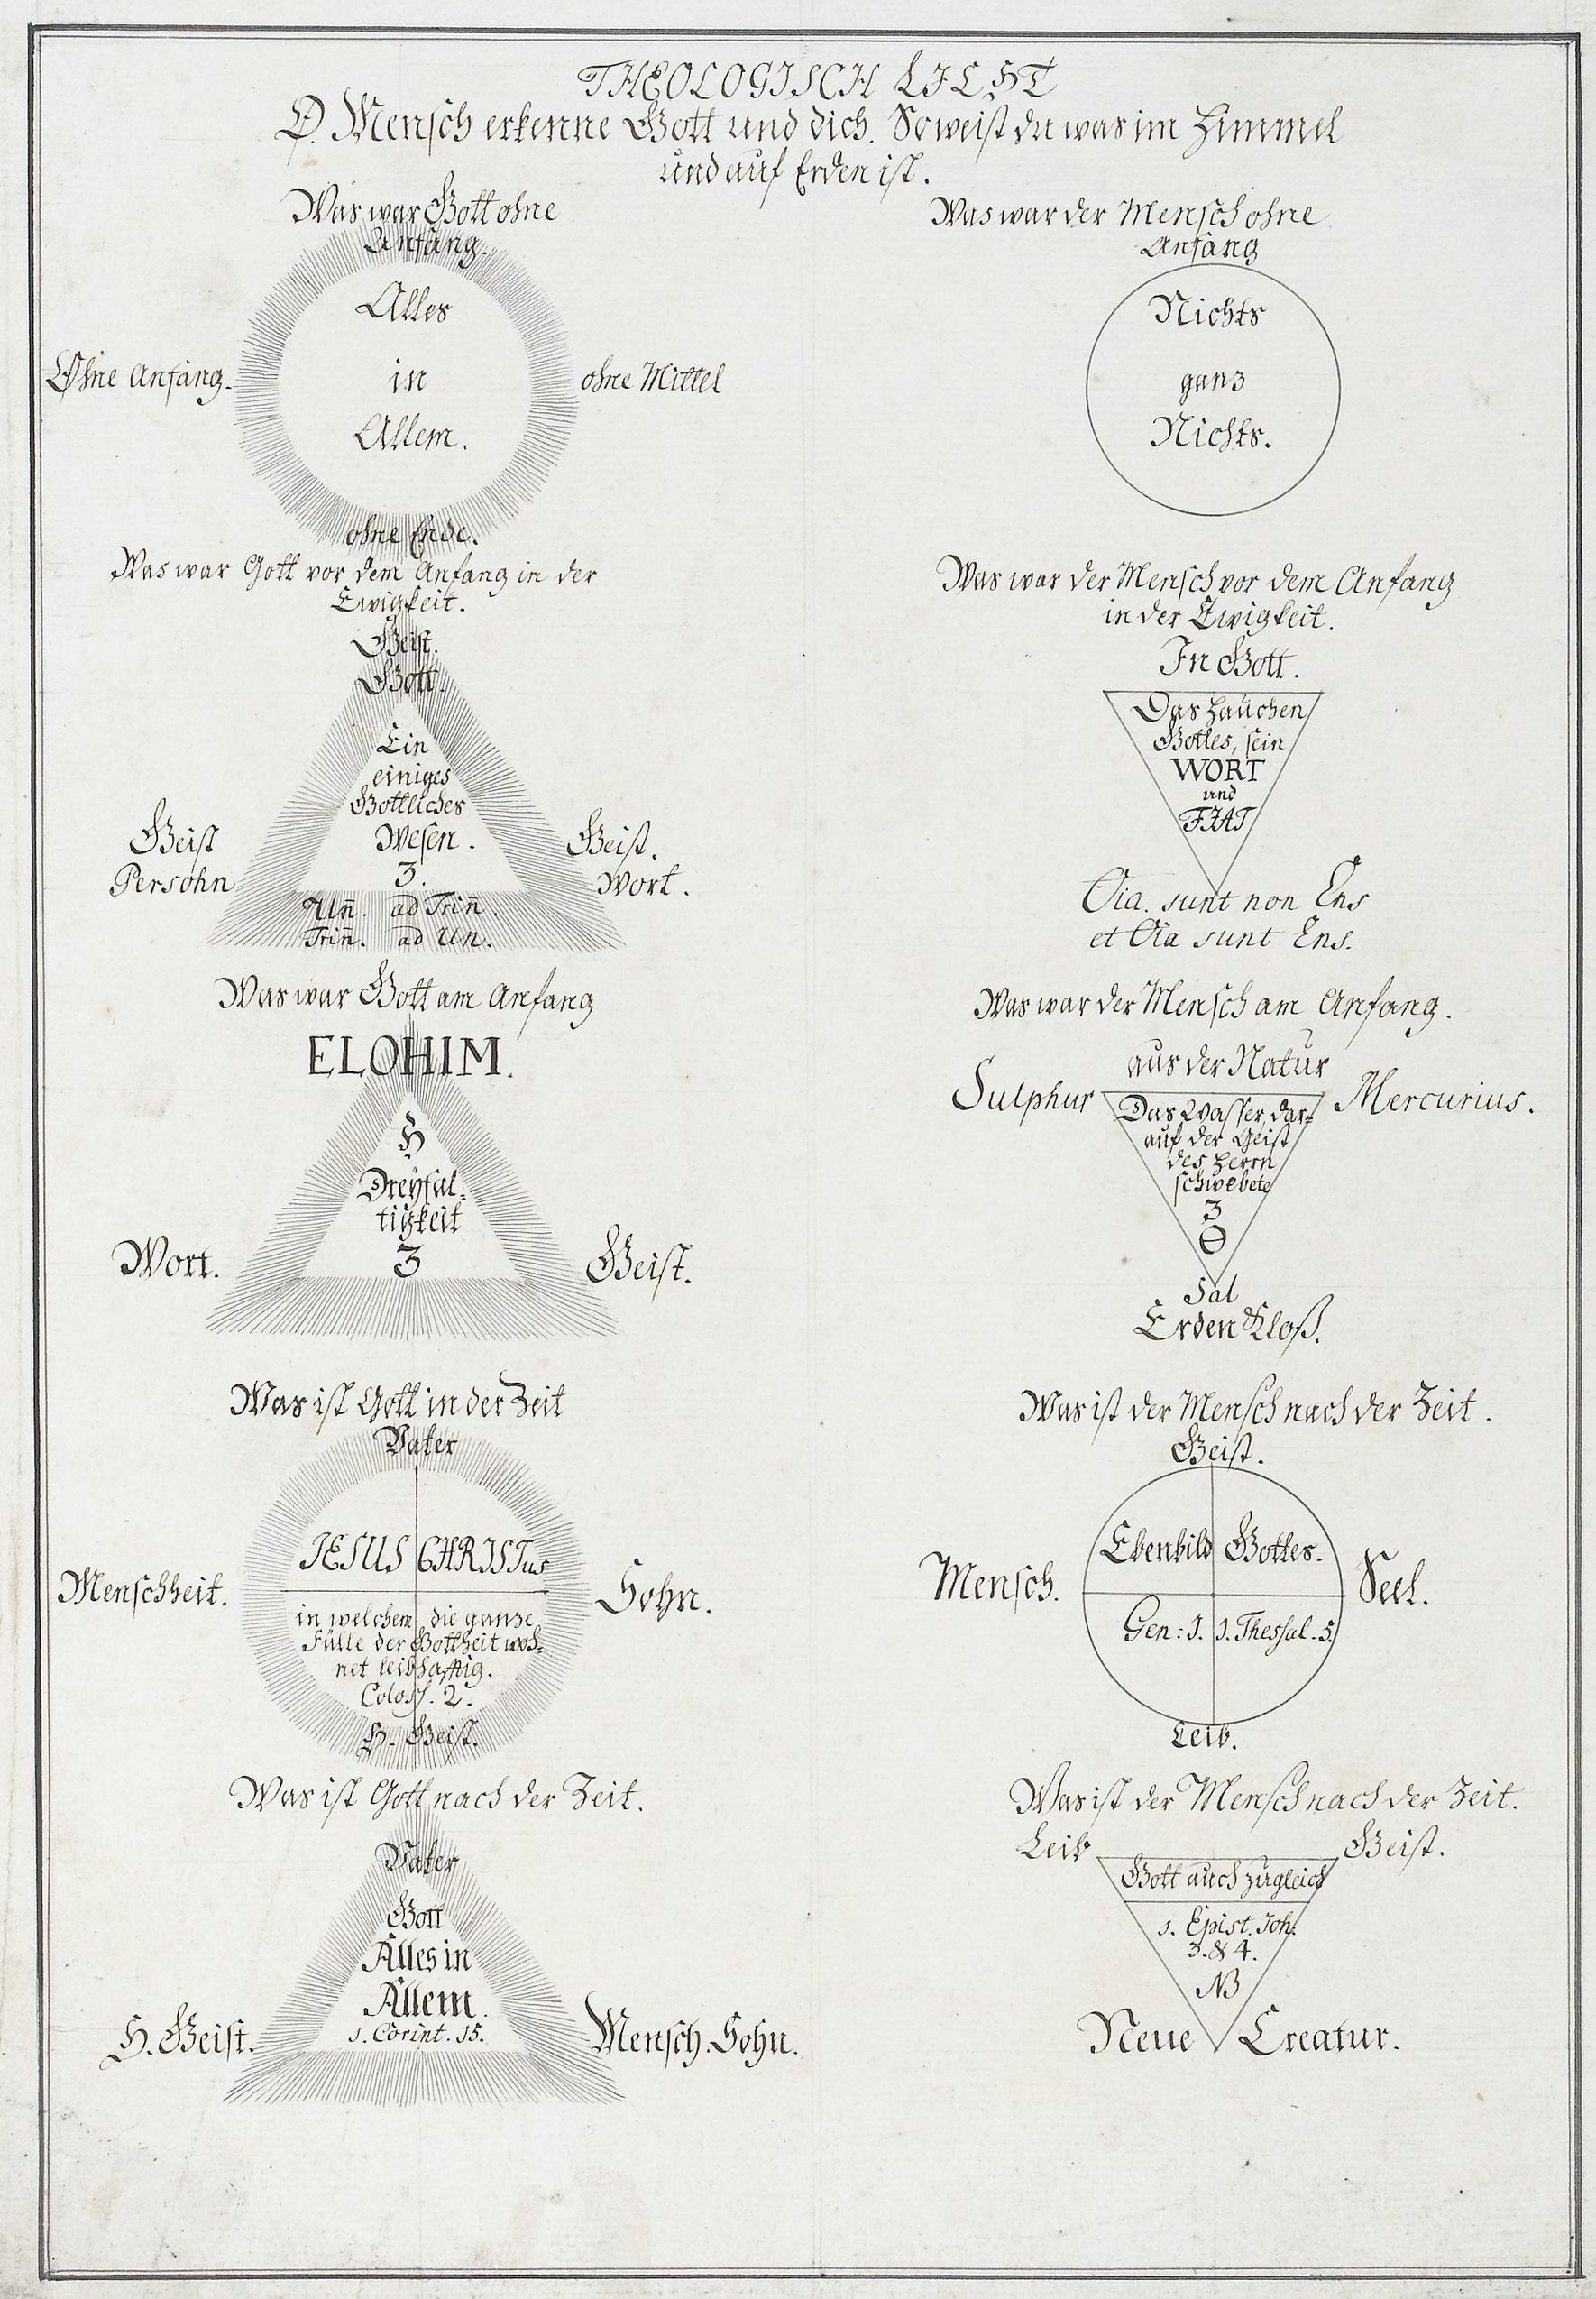 THEOLOGISCH LICHT
O Mensch erkenne Gott und dich. So weist du was im Himmel
und auf Erden ist.
Was war Gott ohne
Anfang.
Alles
in
Allem.
Ohne Anfang.
ohne Mittel
ohne Ende.
Was war der Mensch ohne
Anfang
Nichts
ganz
Nichts.
Was war Gott vor dem Anfang in der
Ewigkeit.
Geist.
Gott.
Ein
einiges
Gottliches
Wesen.
3.
Geist
Persohn
Geist.
Wort.
Un̄. ad Trin̄.
Trin̄. ad Un.
Was war der Mensch vor dem Anfang
in der Ewigkeit.
In Gott.
Das hauchen
Gottes, sein
WORT
und
FIAT
Oia. sunt non Ens
et Oia sunt Ens.
Was war Gott am Anfang
ELOHIM.
H
Dreÿfal-
tigkeit
3
Wort.
Geist.
Was war der Mensch am Anfang.
aus der Natur
Sulphur
Mercurius.
Das Wasser, dar-
auf der Geist
des Herrn
schwebete
3
⊖
Sal
Erden Kloß.
Was ist Gott in der Zeit
Vater
JESUS CHRISTus
in welchem die ganze
Fülle der Gottheit woh-
net leibhafftig.
Coloss. 2.
Menschheit.
Sohn.
H. Geist.
Was ist der Mensch nach der Zeit.
Geist.
Ebenbild Gottes.
Gen: 1. 1. Thessal. 5.
Mensch.
Seel.
Leib.
Was ist Gott nach der Zeit.
Vater
Gott
Alles in
Allem.
1. Corint. 15.
H. Geist.
Mensch. Sohn.
Was ist der Mensch nach der Zeit.
Leib
Geist.
Gott auch zugleich
1. Epist. Joh.
3. & 4.
NB
Neue Creatur.